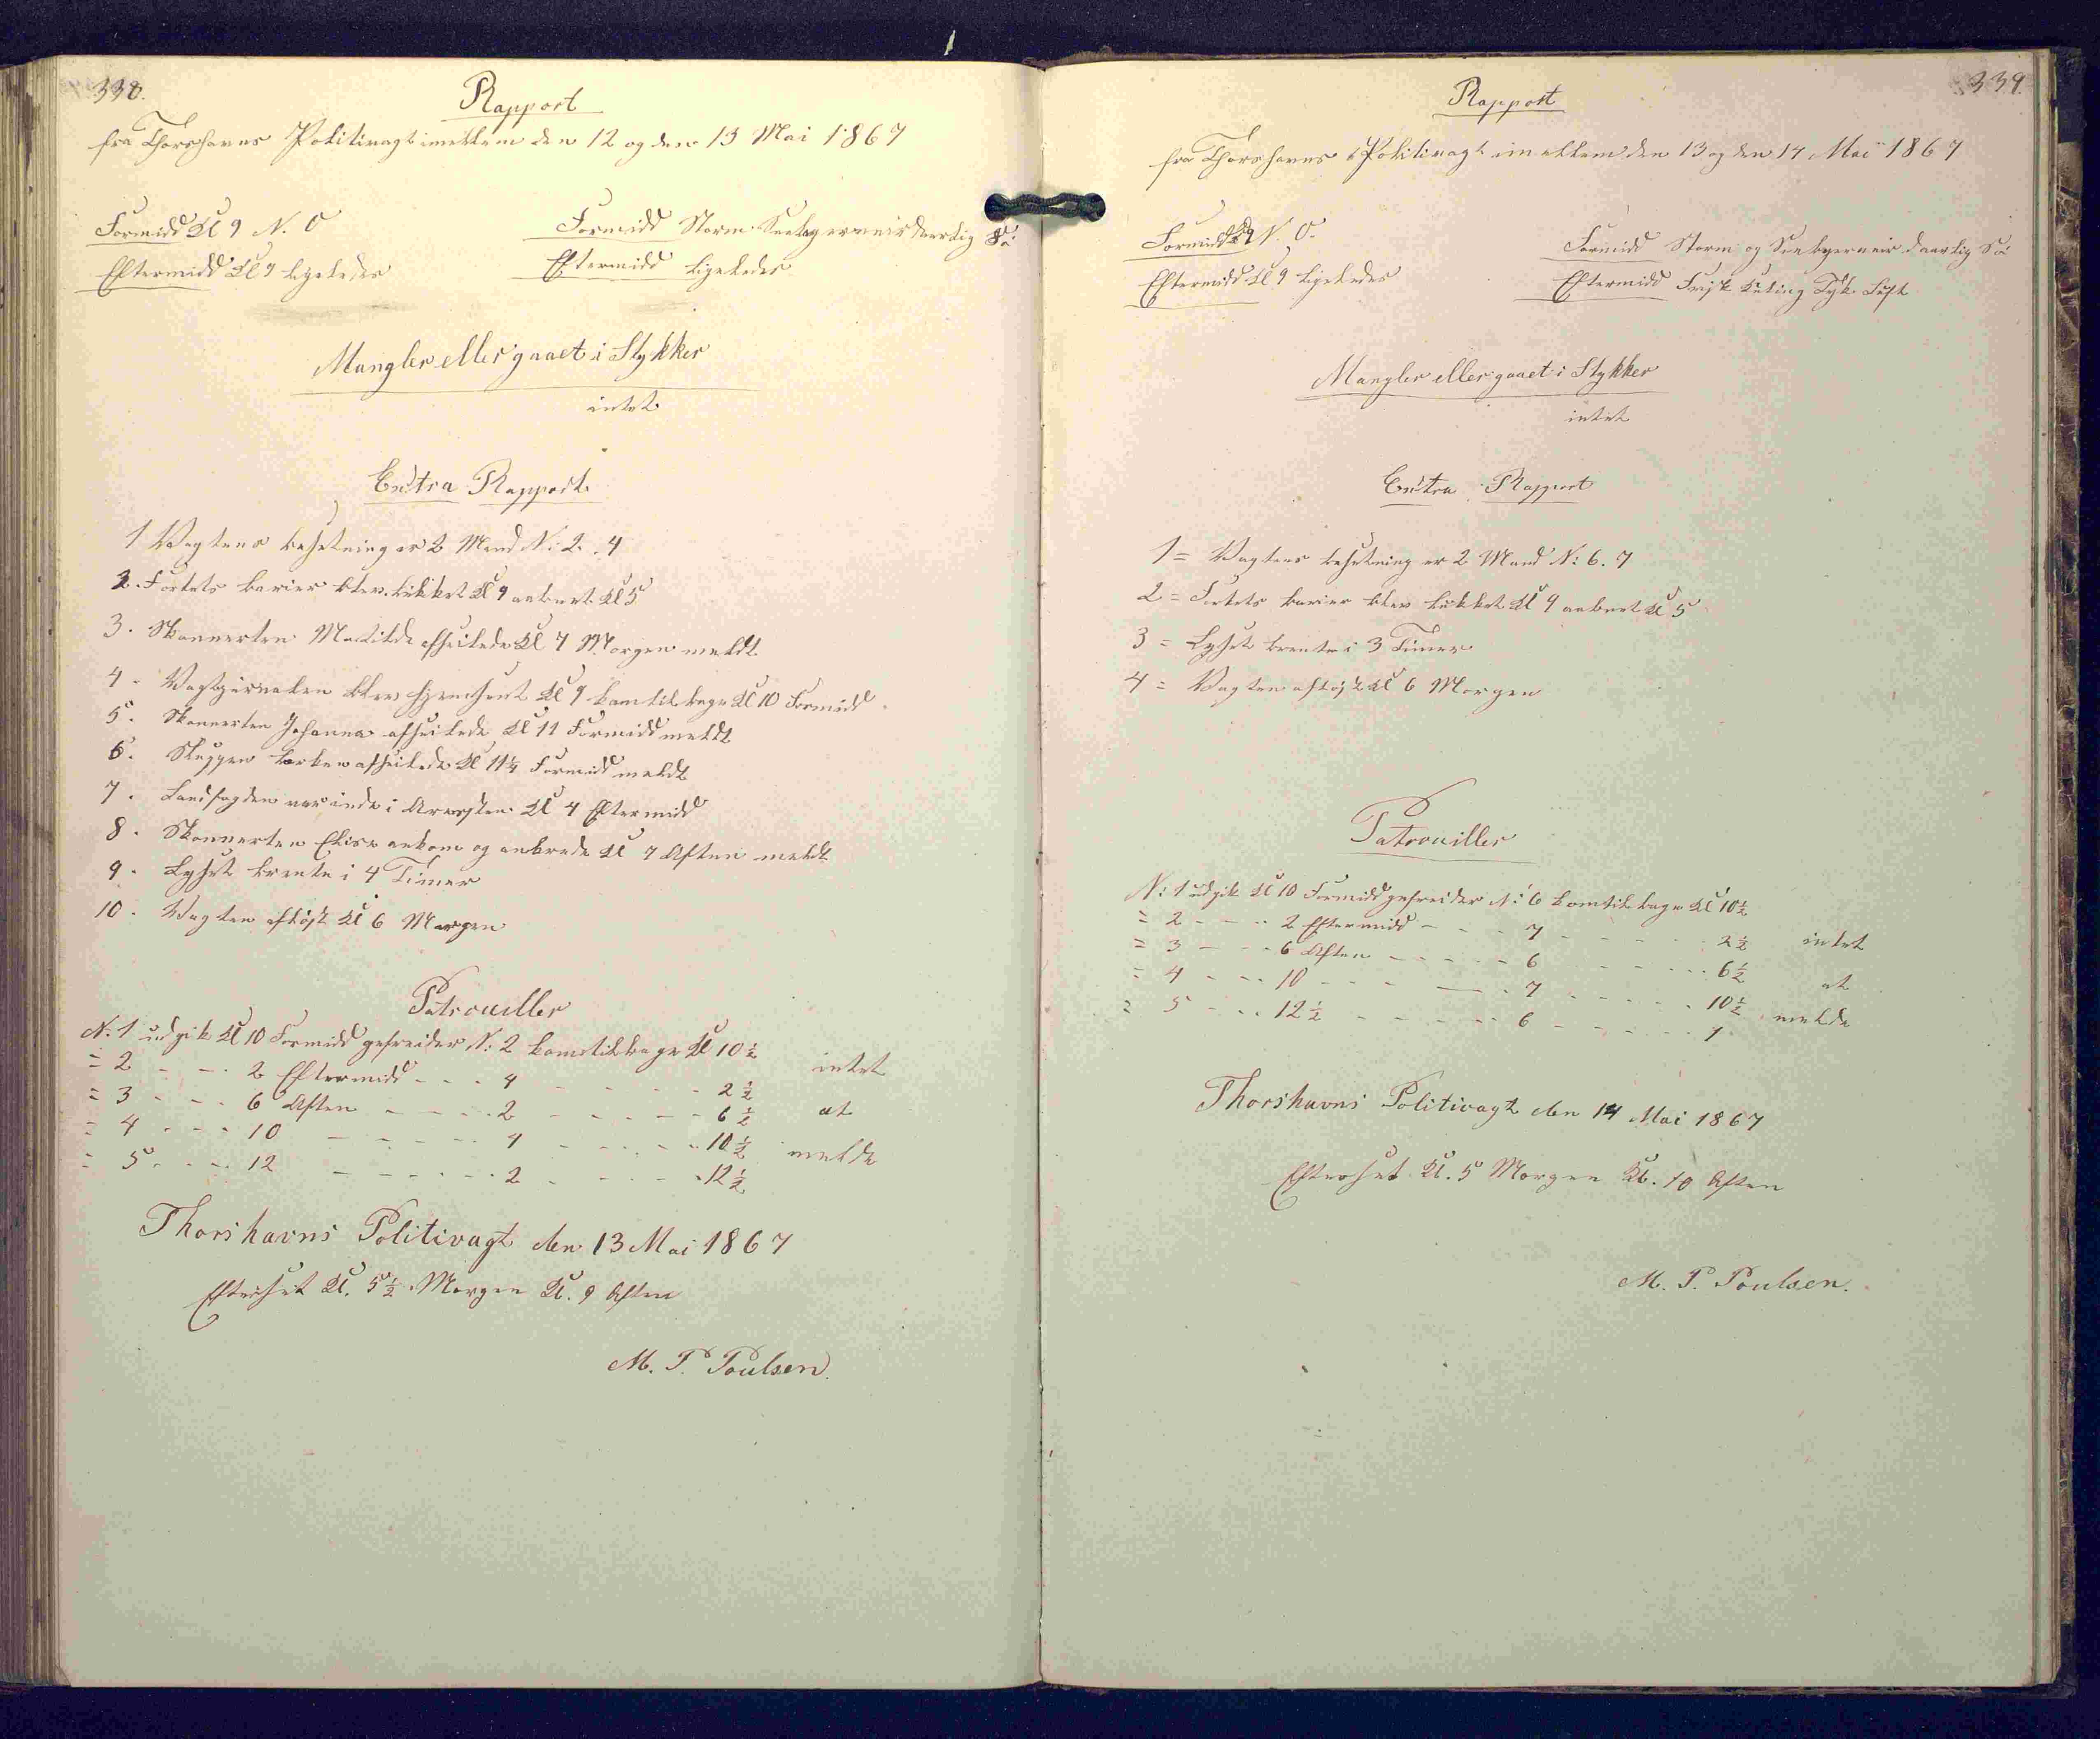 338.
Rapport
fra Thorshavns Politivagt imellem den 12 og den 13 Mai 1867
Formidd Kl 9 N. O
Formidd Storm
Eftermidd Kl 9 ligeledes
Eftermidd ligeledes
Mangler eller gaaet i Stykker
intet
Extra Rapport
1 Vagtens besetning er 2 Mand N: 2. 4
2. Fortets barier blev lukket Kl 9 aabnet Kl 5
3. Skonnerten Matilde afseilede Kl 7 Morgen meldt
4. Vagtjurnalen blev hjemsent Kl 9 kom tilbage Kl 10 Formidd
5. Skonnerten Johanna afseilede Kl 11 Formidd meldt
6. Sluppen afseilede Kl 11¼ Formidd meldt
7. Landfogden var inde i Arresten Kl 4 Eftermidd
8. Skonnerten Elise ankom og ankrede Kl 7 Aften meldt
9. Lyset brente i 4 Timer
10. Vagten afløst Kl 6 Morgen
Patrouiller
N. 1 udgik Kl 10 Formidd gefreider N: 2 kom tilbage Kl 10½
= 2 - - - 2 Eftermidd - - - 4 - - - - - 2½ intet
= 3 - - - 6 Aften - - - - 2 - - - - - 6½ at
= 4 - - - 10 - - - - - 4 - - - - - 10½ melde
= 5 - - - 12 - - - - - 2 - - - - - 12½
Thorshavns Politivagt den 13 Mai 1867
Efterset Kl. 5½ Morgen Kl. 9 Aften
M. P. Poulsen.
339.
Rapport
fra Thorshavns Politivagt imellem den 13 og den 14 Mai 1867
Formidd Kl 9 N. O.
Formidd Storm og
Eftermidd Kl 9 ligeledes
Eftermidd Frisk Kuling Tyk Luft
Mangler eller gaaet i Stykker
intet
Extra Rapport
1 = Vagtens besetning er 2 Mand N: 6. 7
2 = Fortets barier blev lukket Kl 9 aabnet Kl 5
3 = Lyset brente i 3 Timer
4 = Vagten afløst Kl 6 Morgen
Patrouiller
N: 1 udgik Kl 10 Formidd gefreider N: 6 kom tilbage Kl 10½
= 2 - - - 2 Eftermidd - - - 7 - - - - - 2½ intet
= 3 - - - 6 Aften - - - - - 6 - - - - - 6½ at
= 4 - - - 10 - - - - - 7 - - - - - 10½ melde
= 5 - - - 12½ - - - - - 6 - - - - - 1
Thorshavns Politivagt den 14 Mai 1867
Efterset Kl. 5 Morgen Kl. 10 Aften
M. P. Poulsen.